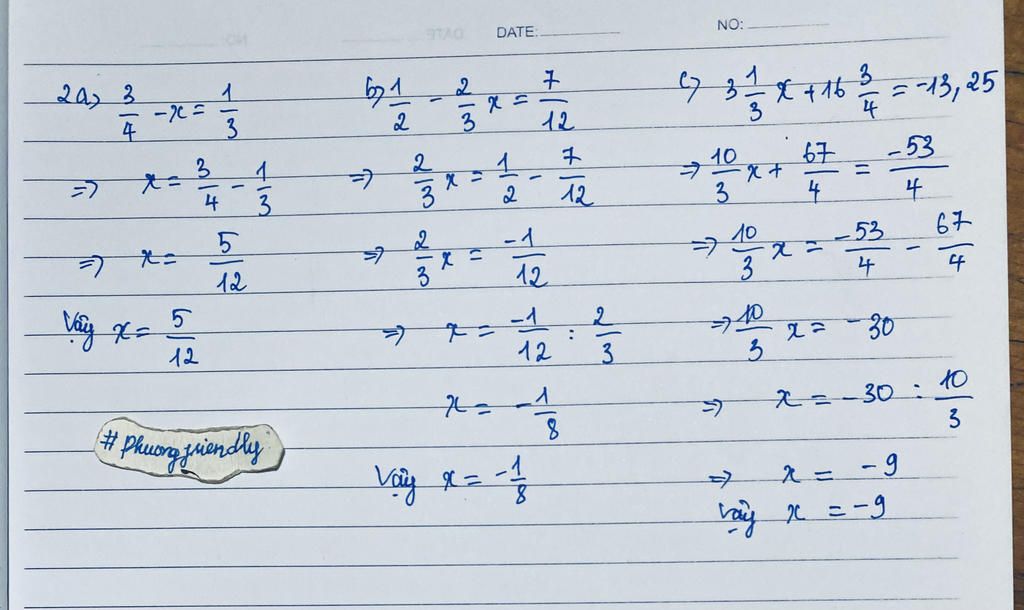 DATE: NO:
2a) 3/4 - x = 1/3
=> x = 3/4 - 1/3
=> x = 5/12
Vậy x = 5/12
#phuongfriendly
b) 1/2 - 2/3 x = 7/12
=> 2/3 x = 1/2 - 7/12
=> 2/3 x = -1/12
=> x = -1/12 : 2/3
x = -1/8
Vậy x = -1/8
c) 3 1/3 x + 16 3/4 = -13,25
=> 10/3 x + 67/4 = -53/4
=> 10/3 x = -53/4 - 67/4
=> 10/3 x = -30
=> x = -30 : 10/3
=> x = -9
Vậy x = -9